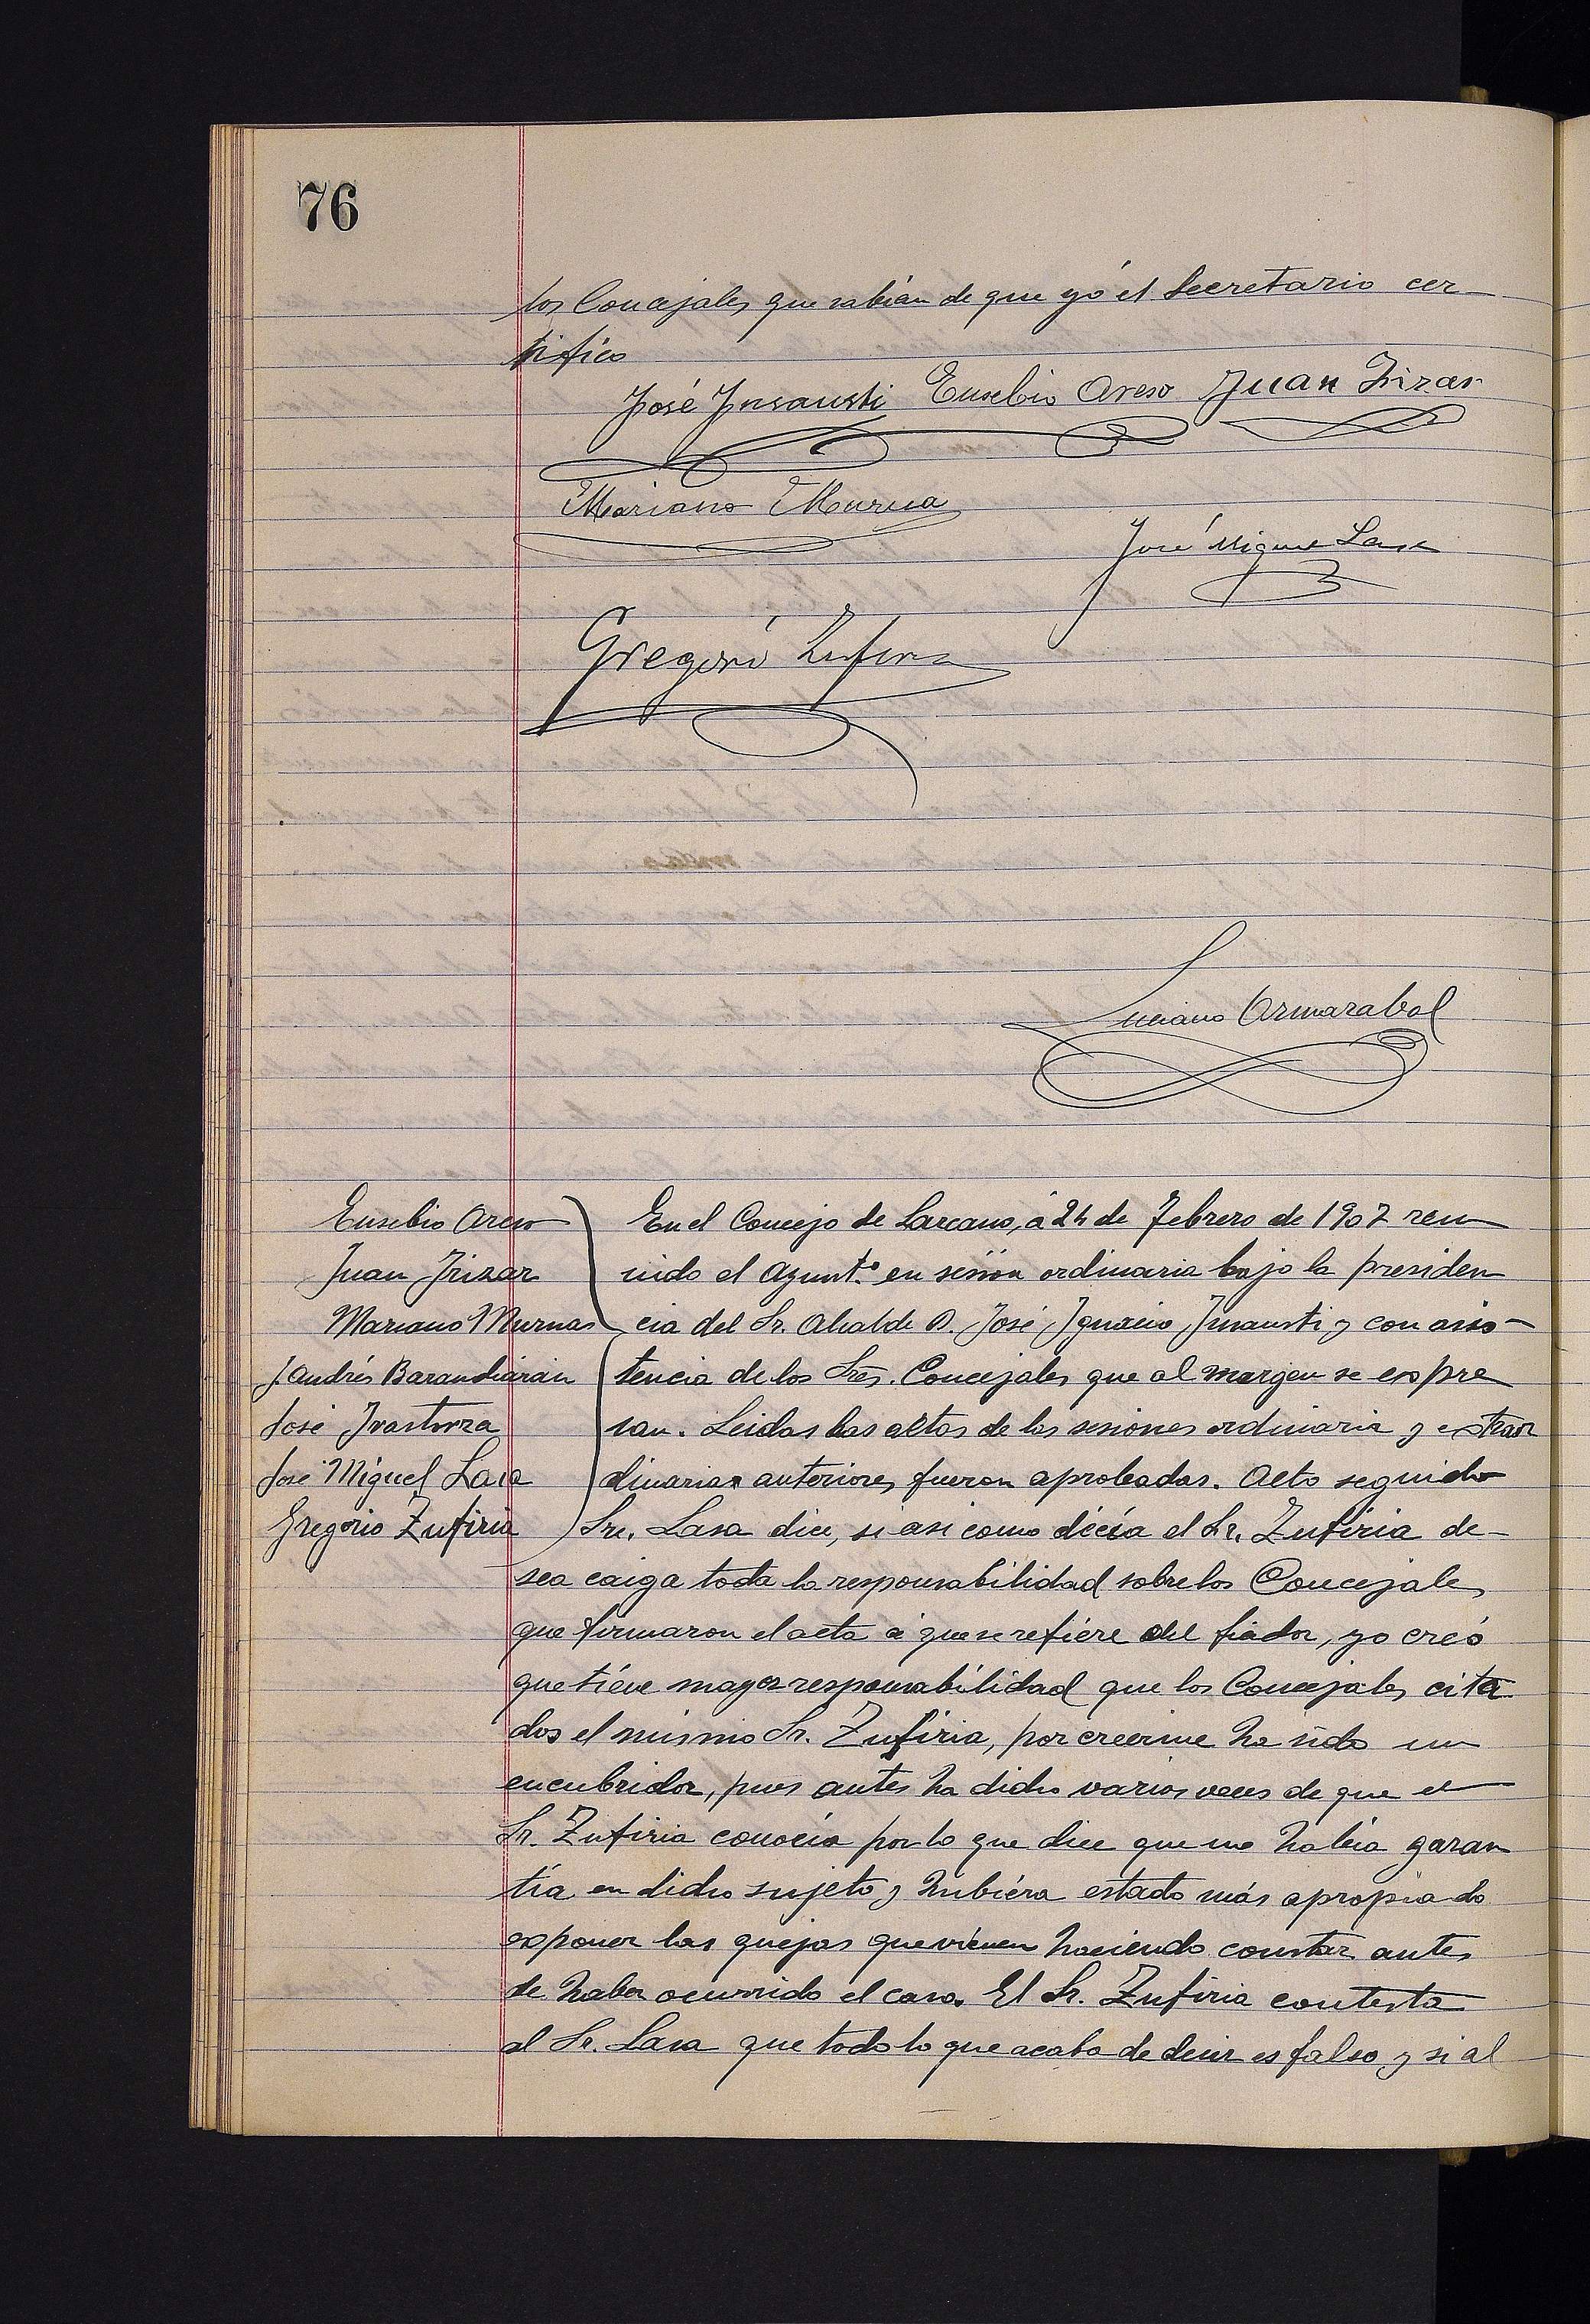 76
los Concejales que sabian de que yó el Secretario cer-
tifico
José Insausti Eusebio Areso Juan Irizar
Mariano Murua
José Miguel Lasa
Gregorio Zufiria
Luciano Ormazabal
Eusebio Areso
Juan Irizar
Mariano Murua
J. Andrés Barandiarán
José Irastorza
José Miguel Lasa
Gregorio Zufiria
En el Concejo de Lazcano, á 24 de Febrero de 1907 reu
nido el Ayunt.º en sesión ordinaria bajo la presiden
cia del Sr. Alcalde D. José Ignacio Insausti y con asis-
tencia de los Sres. Concejales que al margen se expre
san. Leidas las actas de las sesiones ordinaria y extraor
dinaria anteriores fueron aprobadas. Acto seguido
Sr. Lasa dice, si asi como décía el Sr. Zufiria de-
sea caiga toda la responsabilidad sobre los Concejales
que firmaron el acta á que se refiere del fiador, yo creó
que tiene mayor responsabilidad que los Concejales cita
dos el mismo Sr. Zufiria, por creerme ha sido un
encubridor, pues antes ha dicho varios veces de que el
Sr. Zufiria conocía por lo que dice que no había garan
tía en dicho sujeto y hubiéra estado más apropiado
exponer las quejas que vienen haciendo constar antes
de haber ocurrido el caso. El Sr. Zufiria contesta
al Sr. Lasa que todo lo que acaba de decir es falso y si al